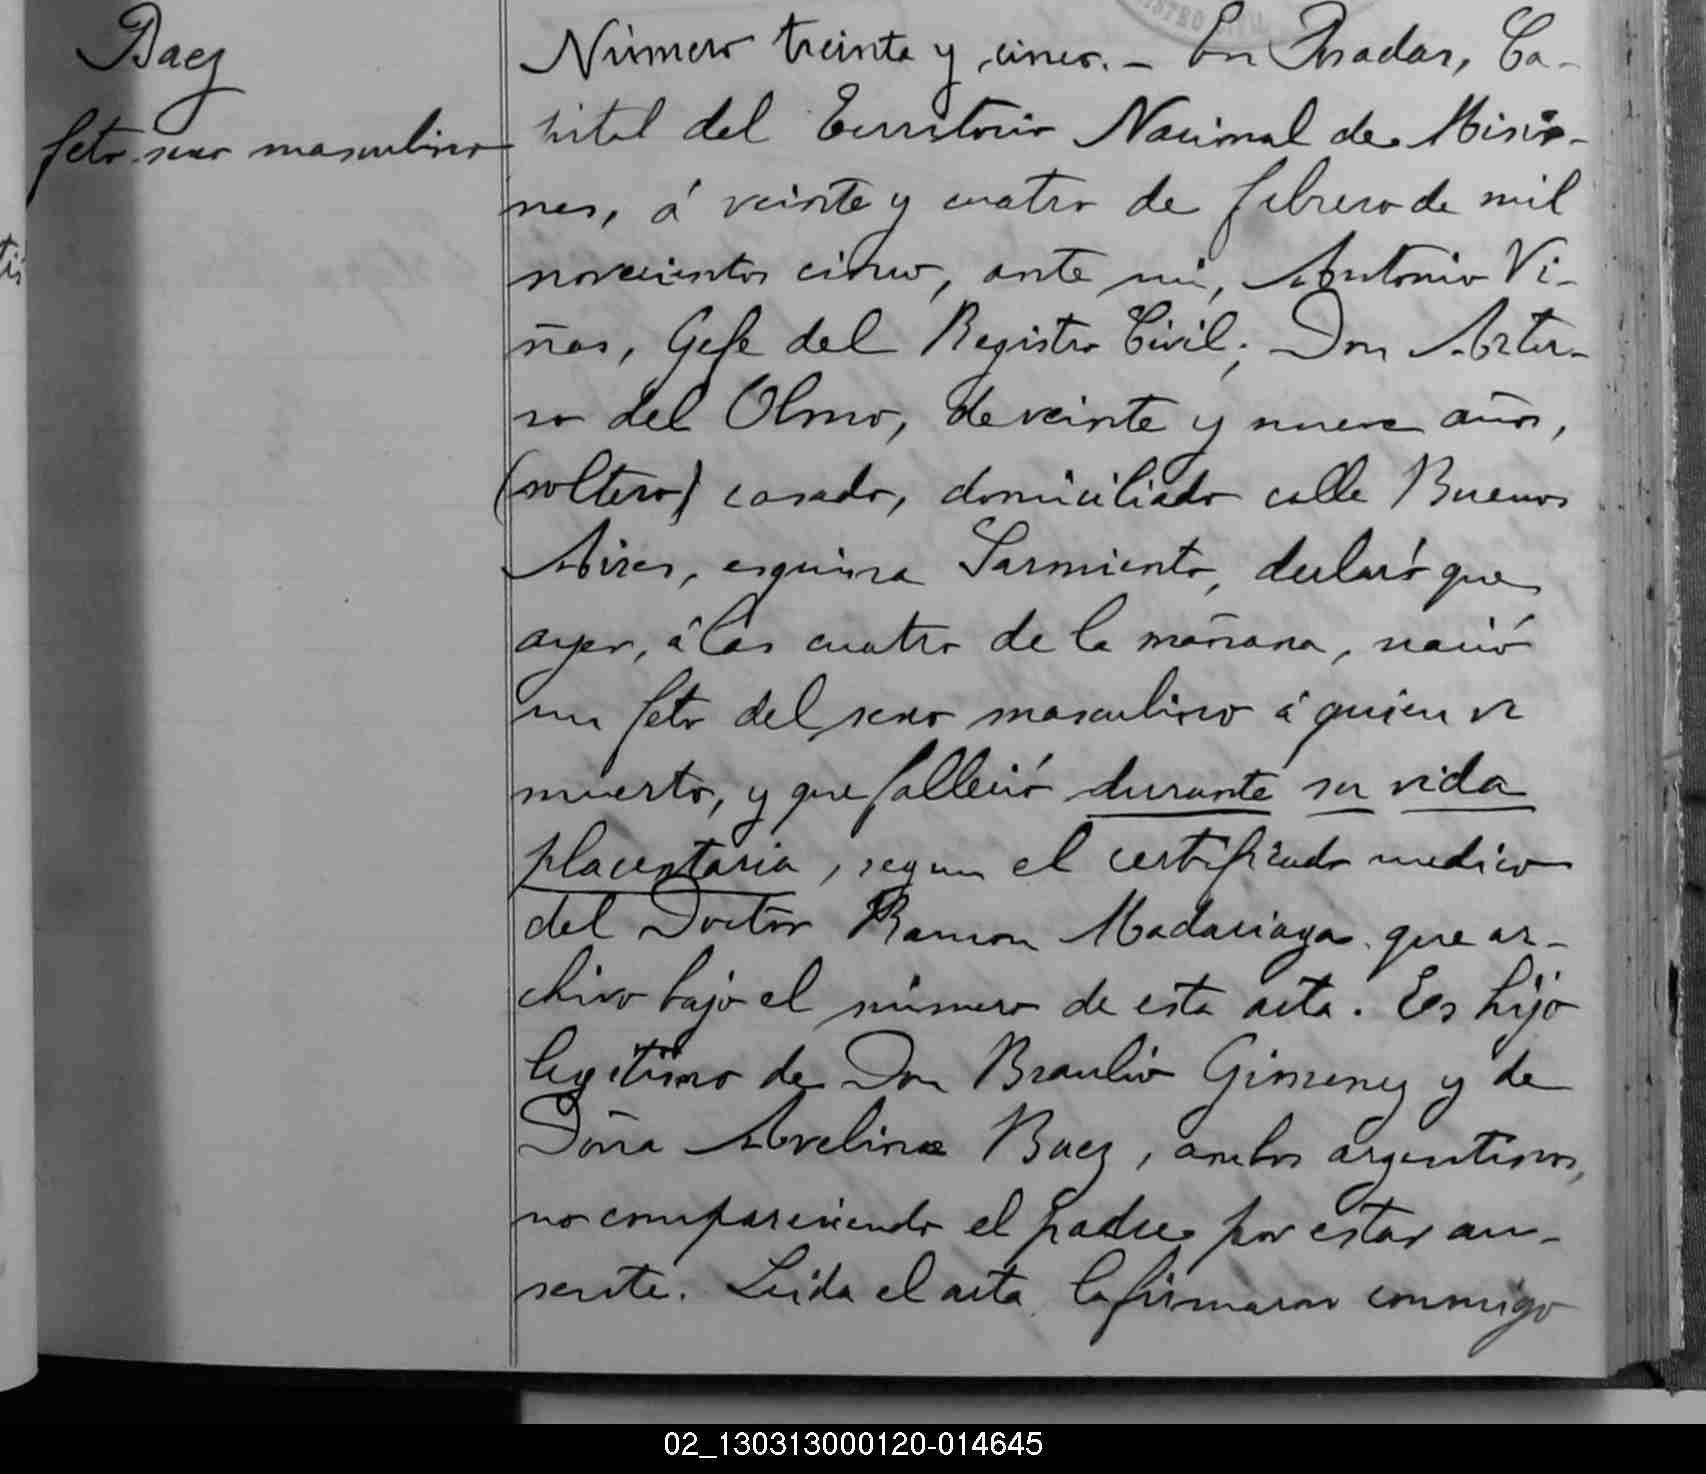 Baez
feto sexo masculino
Número treinta y cinco. — En Posadas, Ca-
pital del Territorio Nacional de Misio-
nes, á veinte y cuatro de febrero de mil
novecientos cinco, ante mi, Antonio Vi-
ñas, Gefe del Registro Civil; Don Artu-
ro del Olmo, de veinte y nueve años,
(soltero) casado, domiciliado calle Buenos
Aires, esquina Sarmiento, declaró que
ayer, á las cuatro de la mañana, nació
un feto del sexo masculino á quien vi
muerto, y que falleció durante su vida
placentaria, segun el certificado medico
del Doctor Ramon Madariaga que ar-
chivo bajo el número de esta acta. Es hijo
legitimo de Don Braulio Gimenez y de
Doña Avelina Baez, ambos argentinos,
no compareciendo el padre por estar au-
sente. Leida el acta la firmaron conmigo
02_130313000120-014645